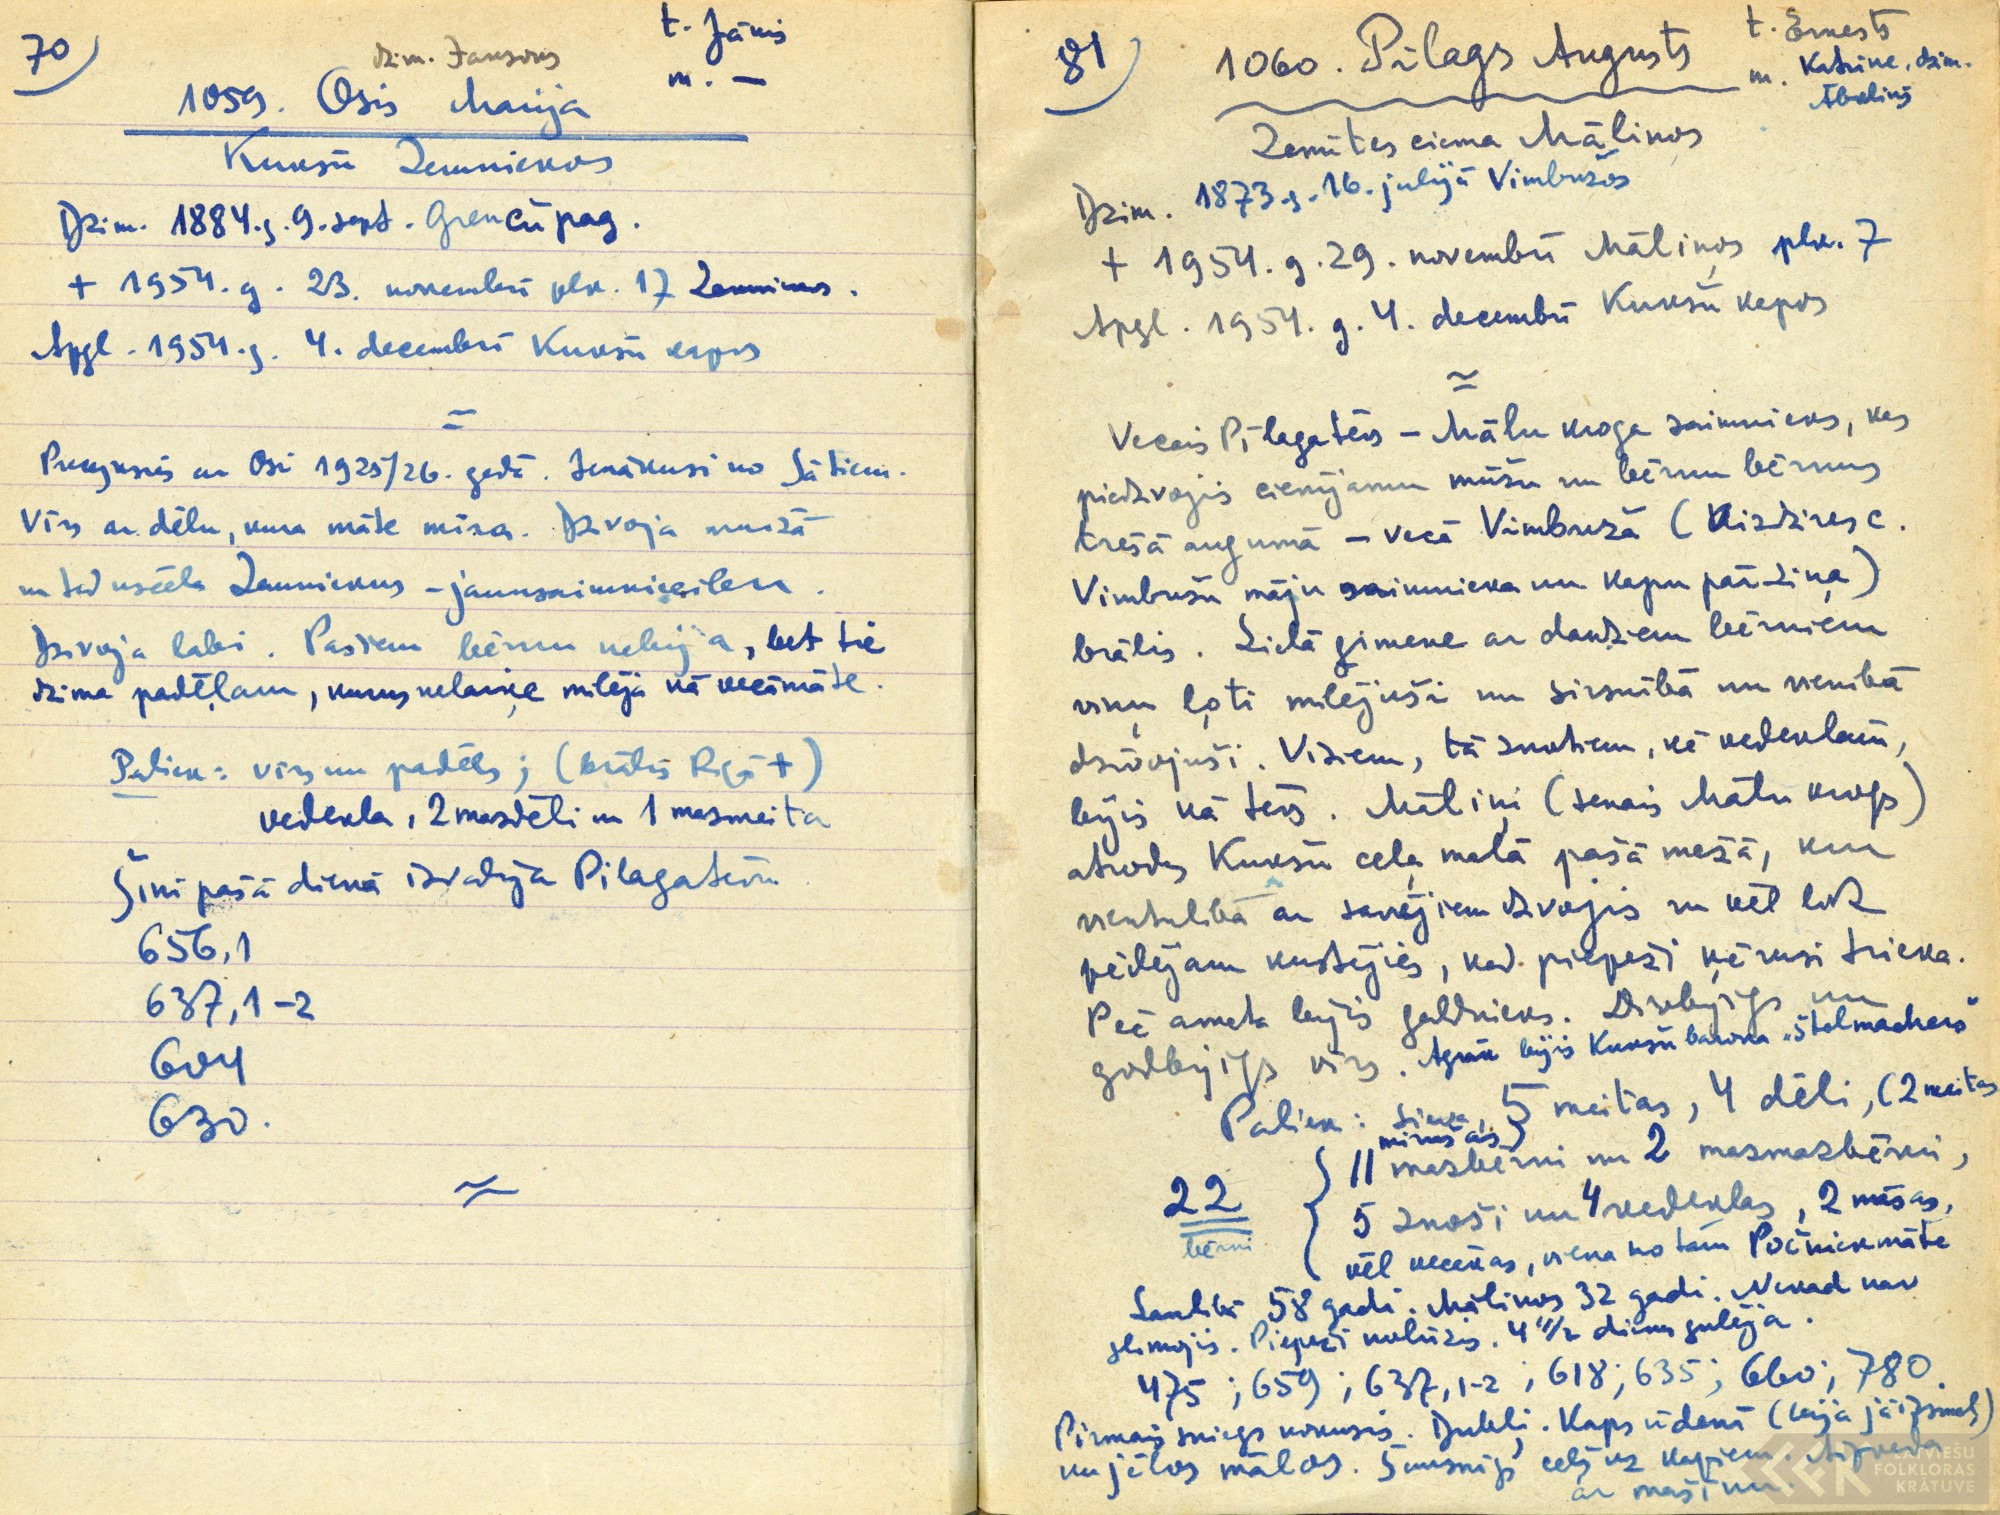 70)
dzim. Jansons
t. Jānis
m. —
1059. Osis Marija
Kukšu Zemniekos
Dzim. 1884.g. 9. sept. Grenču pag.
+ 1954. g. 23. novembrī plk. 17 Zemniekos.
Apgl. 1954.g. 4. decembrī Kukšu kapos
=
Precējusies ar Osi 1925/26. gadā. Ienākusi no Sātiem.
Vīrs ar dēlu, kura māte mirusi. Dzīvoja muižā
un tad uzcēla Zemniekus – jaunsaimniecību.
Dzīvoja labi. Pašiem bērnu nebija, bet tie
dzima padēlam, kurus nelaiķe mīlēja kā vecāmāte.
Paliek: vīrs un padēls; (brālis Rīgā +)
vedekla, 2 mazdēli un 1 mazmeita
Šinī pašā dienā izvadīja Pīlagatēvu
656,1
637,1-2
604
630.
≈
81)
1060. Pīlags Augusts
t. Ernests
m. Katrīne, dzim.
Ābeliņš
Zemītes ciema Māliņos
Dzim. 1873.g. 16. jūlijā Vimbužos
+ 1954. g. 29. novembrī Māliņos plk. 7
Apgl. 1954. g. 4. decembrī Kukšu kapos
≈
Vecais Pīlagatēvs – Mālu kroga saimnieks, kas
piedzīvojis cienījamu mūžu un bērnu bērnus
trešā augumā – vecā Vimbužā (Aizdzires c.
Vimbužu māju saimnieka un kapu pārziņa)
brālis. Lielā ģimene ar daudziem bērniem
viņu ļoti mīlējuši un sirsnībā un vienībā
dzīvojuši. Visiem, tā znotiem, kā vedeklām,
bijis kā tēvs. Māliņi (senais Mālu krogs)
atrodas Kukšu ceļa malā pašā mežā, kur
vientulībā ar savējiem dzīvojis un vēl līdz
pēdējam kustējies, kad piepeži ķērusi trieka.
Pēc amata bijis galdnieks. Dievbijīgs un
godbijīgs vīrs. Agrāk bijis Kukšu barona „štelmachers"
Paliek: sieva, 5 meitas, 4 dēli, (2 meitas
mirušas)
11 mazbērni un 2 mazmazbērni,
5 znoti un 4 vedeklas, 2 māsas,
vēl vecākas, viena no tām Počniekmāte
22
bērni
Laulībā 58 gadi. Māliņos 32 gadi. Nekad nav
slimojis. Piepeži nolūzis. 4 1/2 dienas gulēja.
475; 659; 637,1-2; 618; 635; 660; 780.
Pirmais sniegs nokusis. Dubļi. Kaps ūdenī (bija jāizsmeļ)
un jēlos mālos. ceļš uz kapiem. Aizveda
ar mašīnu.
LATVIEŠU
FOLKLORAS
KRĀTUVE